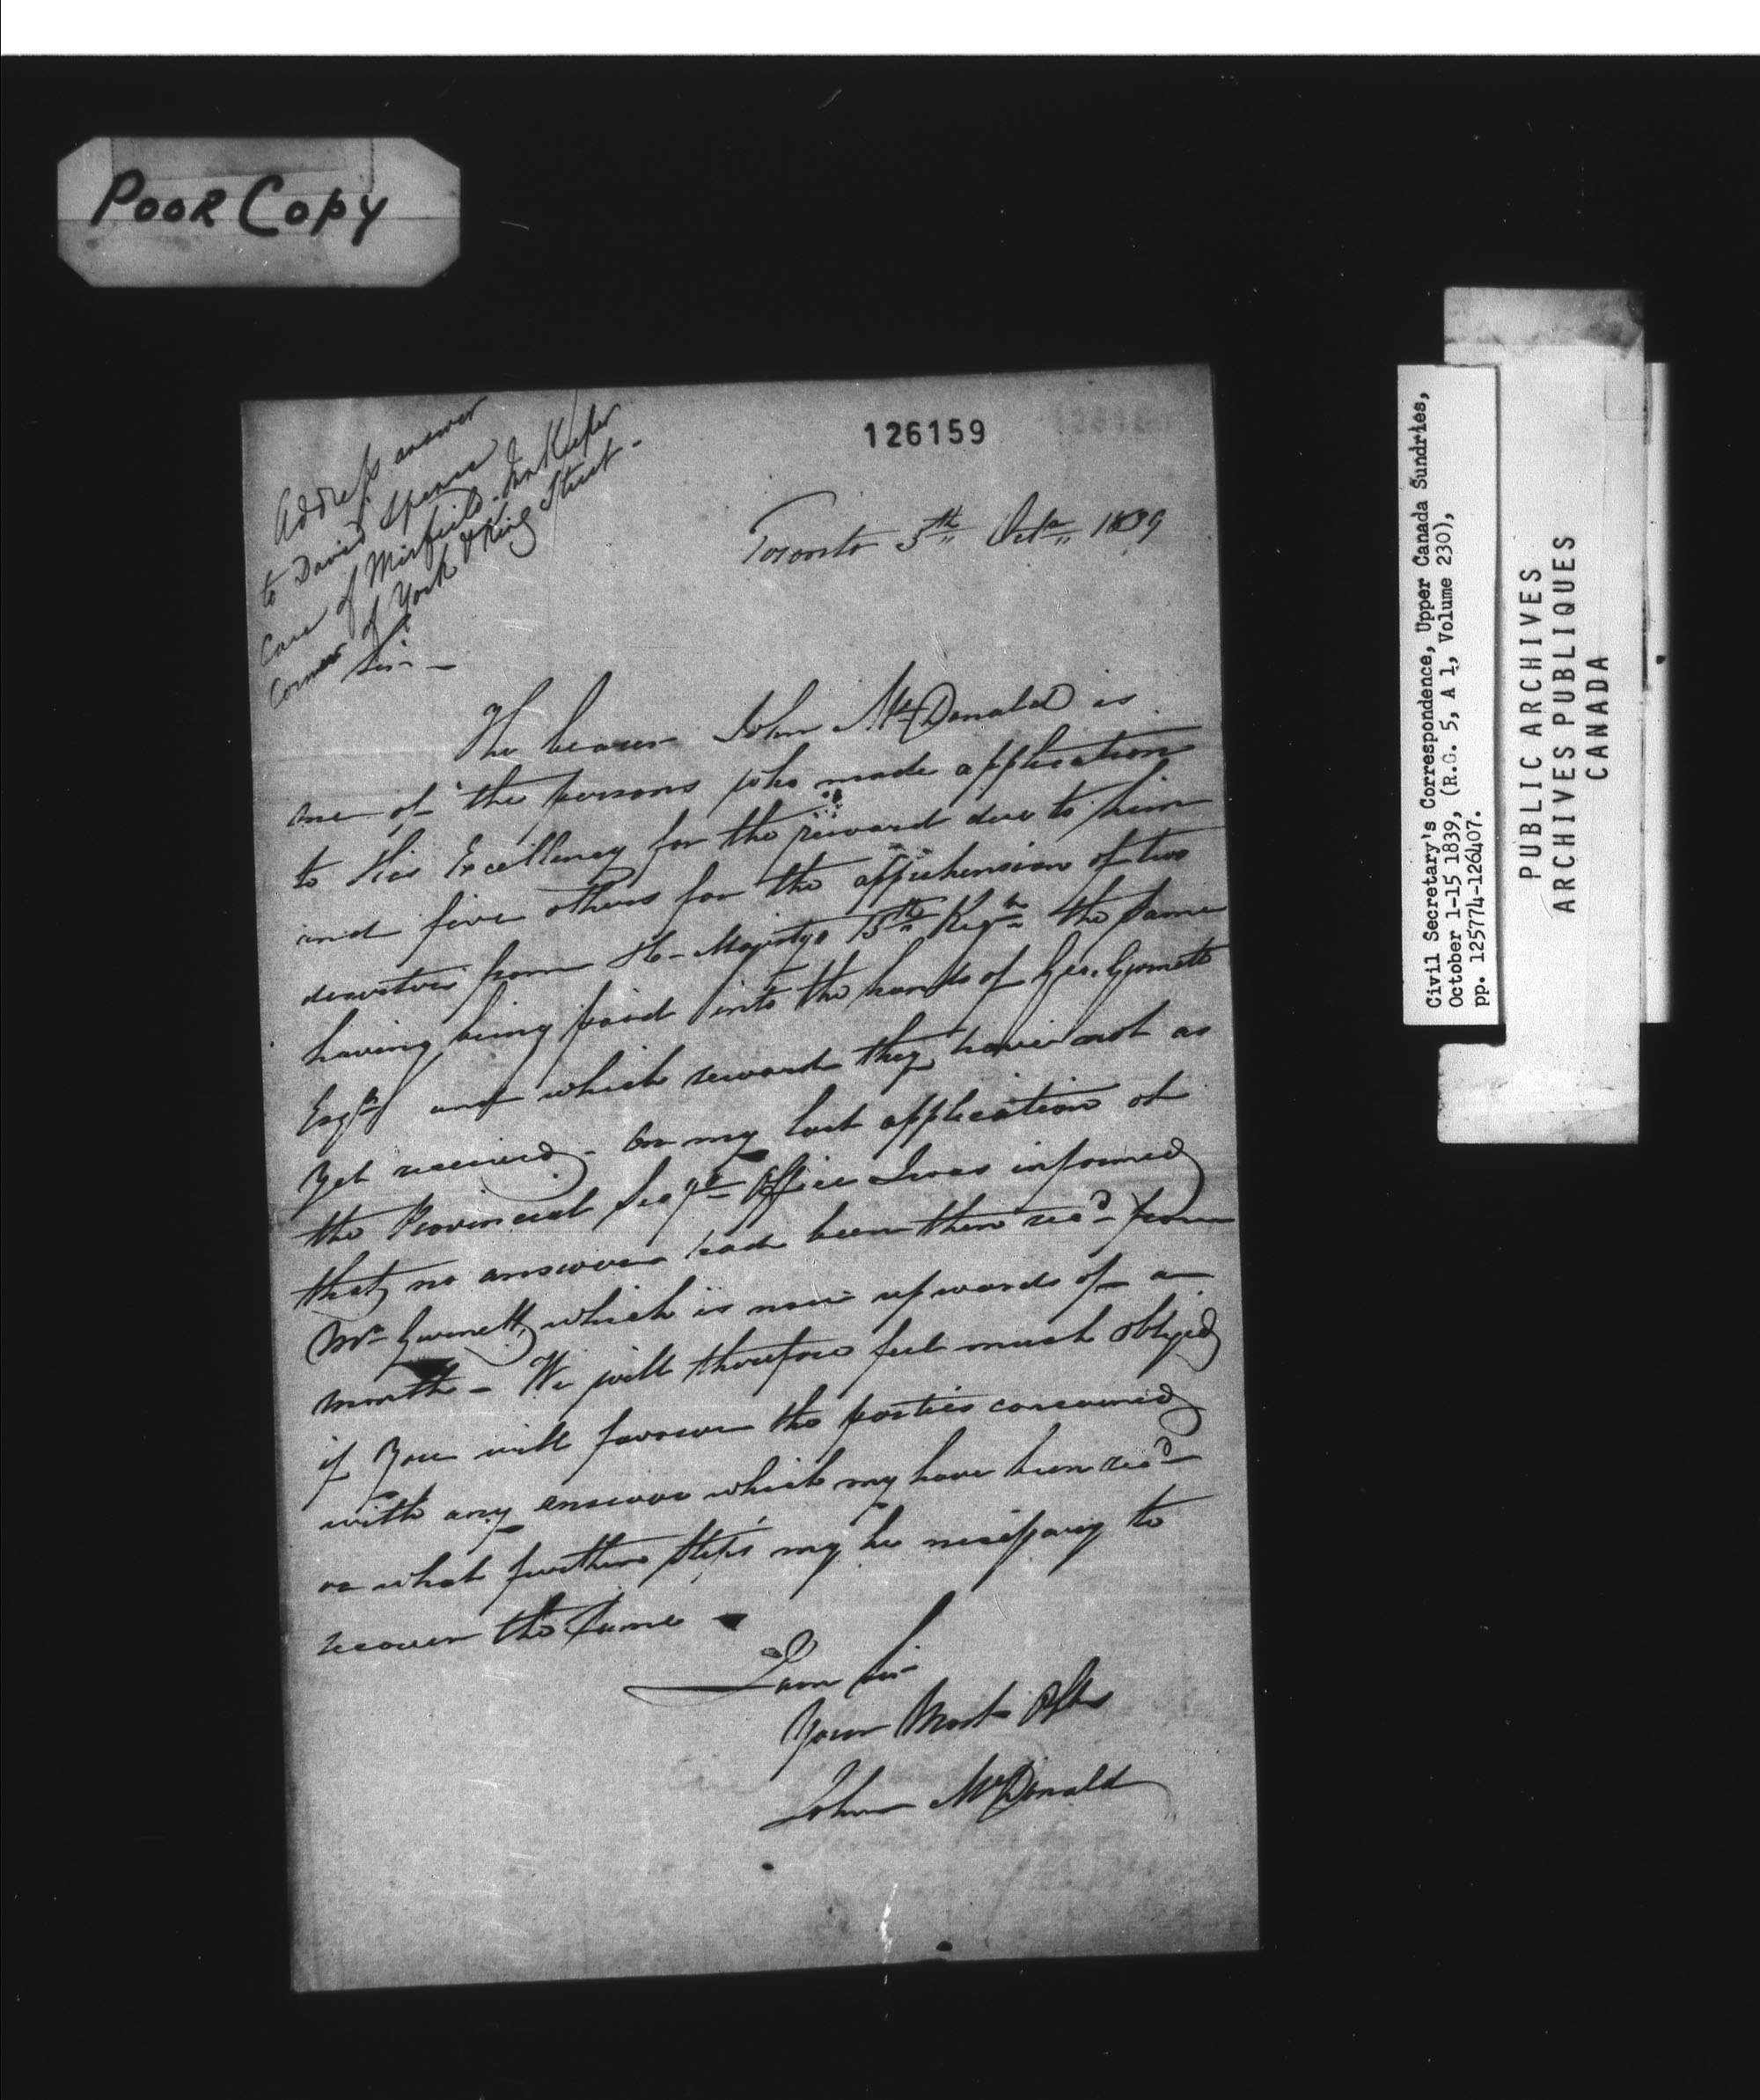 POOR COPY
126159
Address answer
to David Spence
care of Mirfield - Inn Keeper
corner of York & King Street -
Toronto 5th Octr 1839
Sir -
The bearer John McDonald is
one of the persons who made application
to His Excellency for the reward due to him
and five others for the apprehension of two
deserters from Her Majestys 15th Regt the same
having being paid into the hands of Geo. Gurnett
Esqr and which reward they have not as
yet received - On my last application at
the Provincial Secys Office I was informed
that no answer had been then recd from
Mr Gurnett, which is now upwards of a
month - We will therefore feel much obliged
if you will favour the parties concerned
with any answer which my have been recd
or what further steps my be necessary to
recover the same
I am Sir
Your Most Obt
John McDonald
Civil Secretary's Correspondence, Upper Canada Sundries,
October 1-15 1839, (R.G. 5, A 1, Volume 230),
pp. 125774-126407.
PUBLIC ARCHIVES
ARCHIVES PUBLIQUES
CANADA